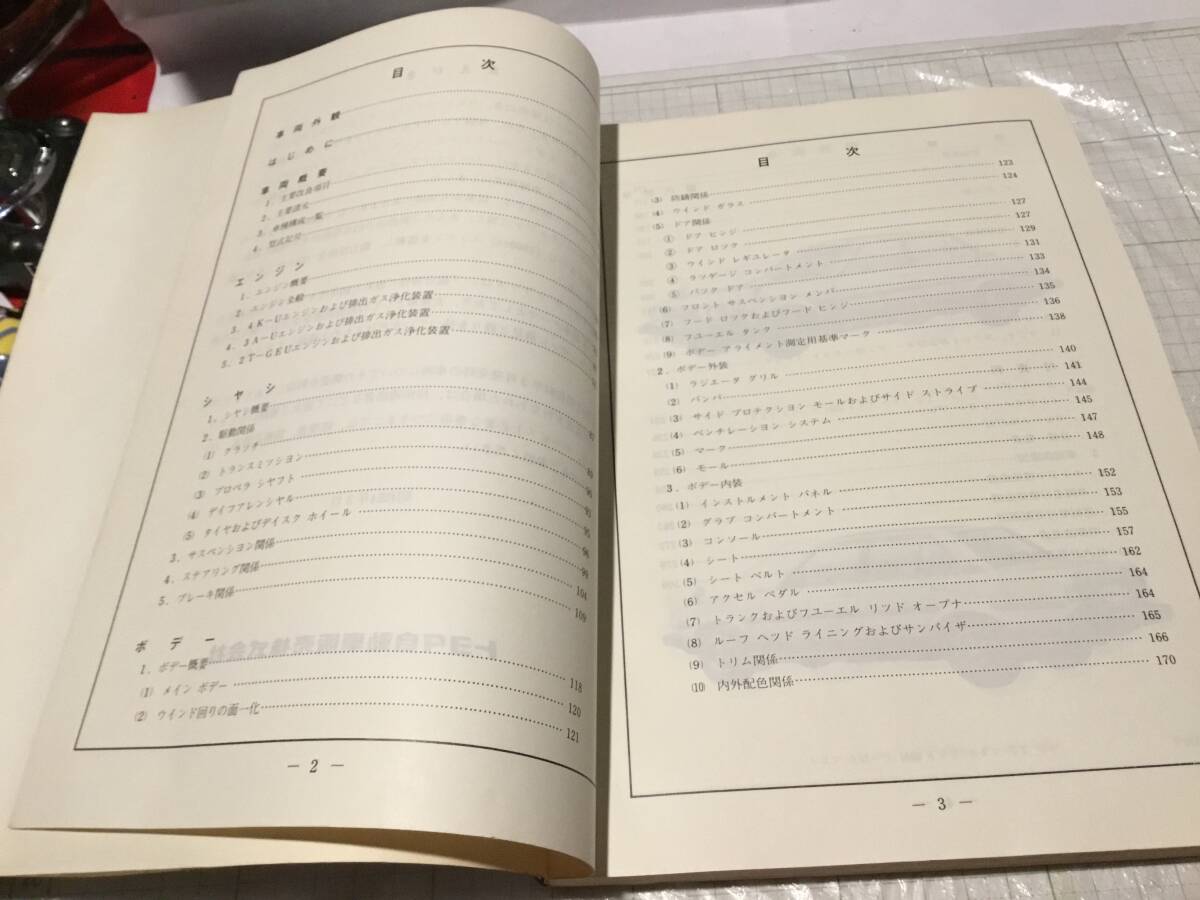 目 次
車 両 外 観
は じ め に
車 両 概 要
1．主要改良項目
2．主要諸元
3．車種構成一覧
4．型式記号
エ ン ジ ン
1．エンジン概要
2．エンジン全般
3．4K－Uエンジンおよび排出ガス浄化装置
4．3A－Uエンジンおよび排出ガス浄化装置
5．2T－GEUエンジンおよび排出ガス浄化装置
シ ヤ シ
1．シヤシ概要
2．駆動関係 87
(1) クラッチ
(2) トランスミツシヨン 89
(3) プロペラ シヤフト 90
(4) デイフアレンシヤル 93
(5) タイヤおよびデイスク ホイール 95
3．サスペンシヨン関係 98
4．ステアリング関係 99
5．ブレーキ関係 104
109
ボ デ ー
1．ボデー概要
(1) メイン ボデー 118
(2) ウインド回りの面一化 120
121
― 2 ―
目 次
(3) 防錆関係 123
(4) ウインド ガラス 124
(5) ドア関係
① ドア ヒンジ 127
② ドア ロツク 127
③ ウインド レギユレータ 129
④ ラツゲージ コンパートメント 131
⑤ バツク ドア 133
(6) フロント サスペンシヨン メンバ 134
(7) フード ロツクおよびフード ヒンジ 135
(8) フユーエル タンク 136
(9) ボデー アライメント測定用基準マーク 138
2．ボデー外装
(1) ラジエータ グリル 140
(2) バンパ 141
(3) サイド プロテクシヨン モールおよびサイド ストライプ 144
(4) ベンチレーシヨン システム 145
(5) マーク 147
(6) モール 148
3．ボデー内装
(1) インストルメント パネル 152
(2) グラブ コンパートメント 153
(3) コンソール 155
(4) シート 157
(5) シート ベルト 162
(6) アクセル ペダル 164
(7) トランクおよびフユーエル リツド オープナ 164
(8) ルーフ ヘツド ライニングおよびサンバイザ 165
(9) トリム関係 166
(10) 内外配色関係 170
― 3 ―